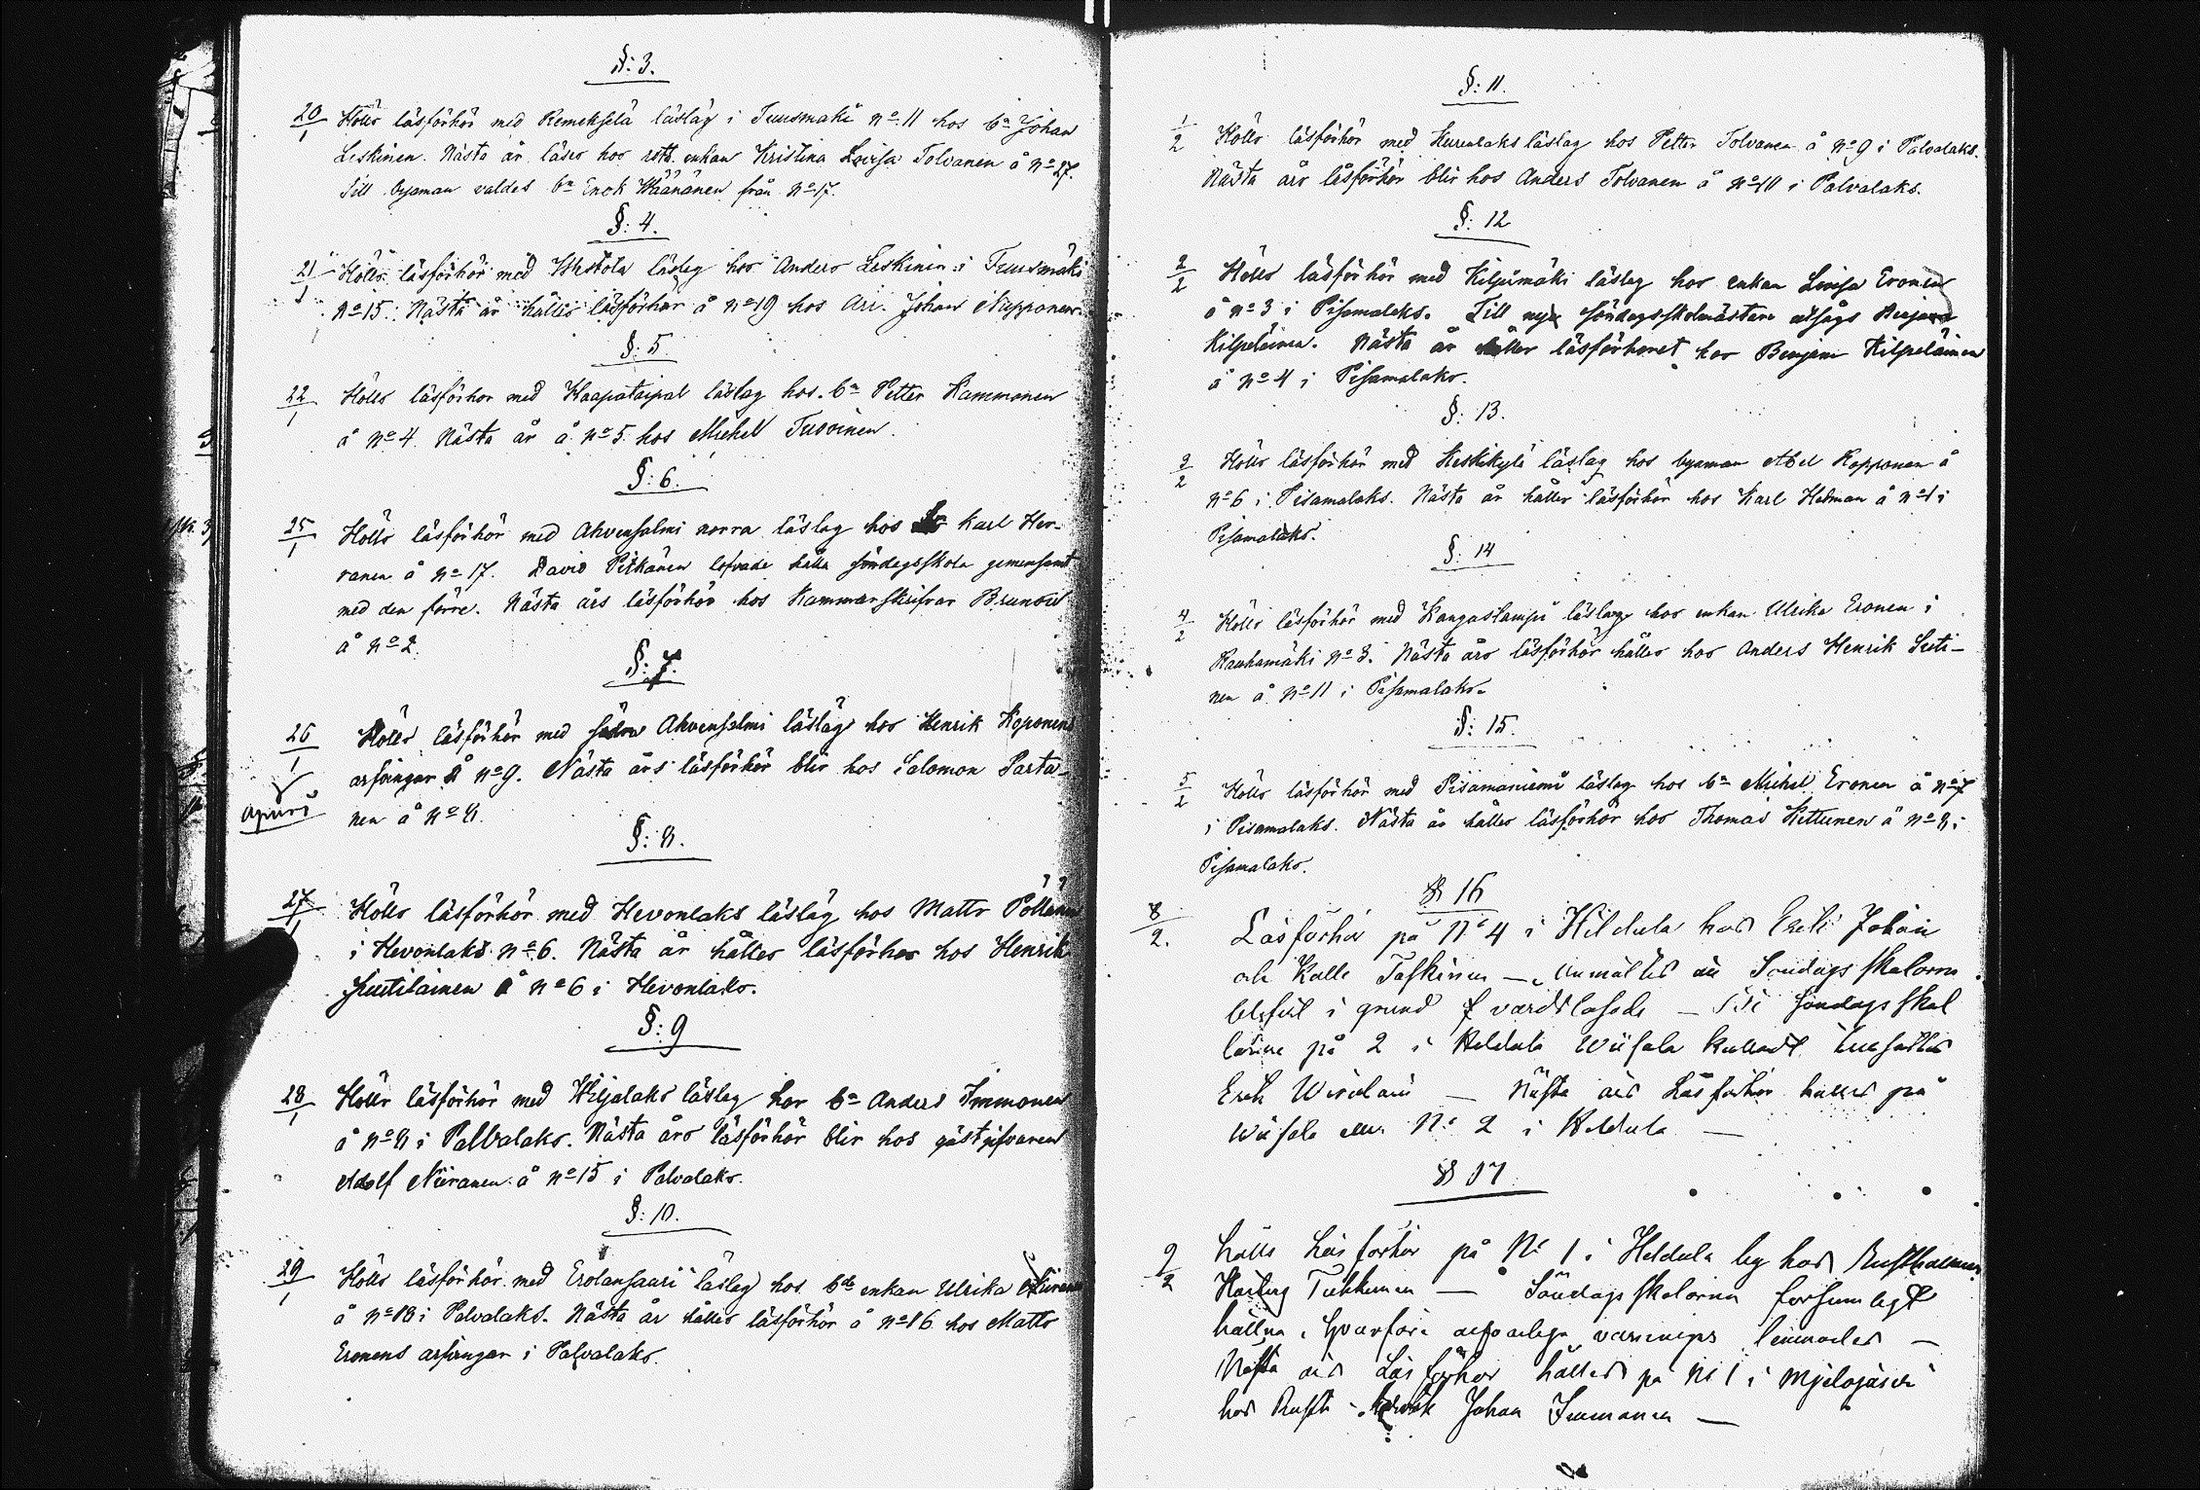 §: 3.
20/1 Hölls läsförhör med Remekselä läslag i Tuusmäki nº 11 hos bn Johan
Leskinen. Nästa år läses hos rotb. enkan Kristina Lovisa Tolvanen å nº 27.
Till byaman valdes bn Enok Väänänen från nº 17.
§: 4.
21/1 Hölls läsförhör med läslag hos Anders Leskinen i Tuusmäki
nº 15. Nästa år hålles läsförhör å nº 19 hos Arr. Johan Nupponen.
§: 5
22/1 Hölls läsförhör med Kaapataipal läslag hos bn Petter Kammonen
å nº 4. Nästa år å nº 5 hos Mickel Turoinen.
§: 6.
25/1 Hölls läsförhör med Ahvensalmi norra läslag hos Karl Her-
ranen å nº 17. David Pitkänen lofvade hålla söndagsskola gemensamt
med den förre. Nästa års läsförhör hos Kammarskrifvar Brunow
å nº 2.
§: 7.
26/1 Hölls läsförhör med södra Ahvensalmi läslag hos Henrik Koponens
arfvingar å nº 9. Nästa års läsförhör blir hos Salomon Parta-
nen å nº 8.
§: 8.
27/1 Hölls läsförhör med Hevonlaks läslag hos Matts Pöllänen
i Hevonlaks nº 6. Nästa år hålles läsförhör hos Henrik
Suutilainen å nº 6 i Hevonlaks.
§: 9
28/1 Hölls läsförhör med Viljalaks läslag hos bn Anders Immonen
å nº 8 i Palvalaks. Nästa års läsförhör blir hos gästgifvaren
Adolf Niiranen å nº 15 i Palvalaks.
§: 10.
29/1 Hölls läsförhör med Erolansaari läslag hos bde enkan Ulrika Niiranen
å nº 18 i Palvalaks. Nästa år hålles läsförhör å nº 16 hos Matts
Eronens arfvingar i Palvalaks.
§: 11.
1/2 Hölls läsförhör med läslag hos Petter Tolvanen å nº 9 i Palvalaks.
Nästa års läsförhör blir hos Anders Tolvanen å nº 10 i Palvalaks.
§: 12
2/2 Hölls läsförhör med Kiljumäki läslag hos enkan Lovisa Eronen
å nº 3 i Pisamalaks. Till ny söndagsskolmästare utsågs Benjam
Kilpeläinen. Nästa år hålles läsförhöret hos Benjam Kilpeläinen
å nº 4 i Pisamalaks.
§: 13.
3/2 Hölls läsförhör med Keskikylä läslag hos byaman Abel Kopponen å
nº 6 i Pisamalaks. Nästa år hålles läsförhör hos Karl Hedman å nº 1 i
Pisamalaks.
§: 14
4/2 Hölls läsförhör med Kangaslampi läslag hos enkan Ulrika Eronen i
Rauhamäki nº 3. Nästa års läsförhör hålles hos Anders Henrik Suti-
nen å nº 11 i Pisamalaks.
§: 15.
5/2 Hölls läsförhör med Pisamaniemi läslag hos bn Mickel Eronen å nº 7
i Pisamalaks. Nästa år hålles läsförhör hos Thomas Kettunen å nº 8 i
Pisamalaks.
§ 16
8/2. Läsförhör på Nº 4 i Hildula hos Erik Johan
och Kalle Taskinen — anmältes att Söndags skolorna
i grund — söndags skol
på 2 i Hildula
Erik — Nästa års Läsförhör hålles på
Nº 2 i Hildula —
§ 17.
9/2 hålls Läs förhör på Nº 1 i Hildula by hos Rusthållaren
Tukkunen — Söndags skolorna försumligt
hållna, hvarföre varningar lemnades —
Nästa års Läsförhör hålles på Nº 1 i
hos Rusth. Johan Immonen —